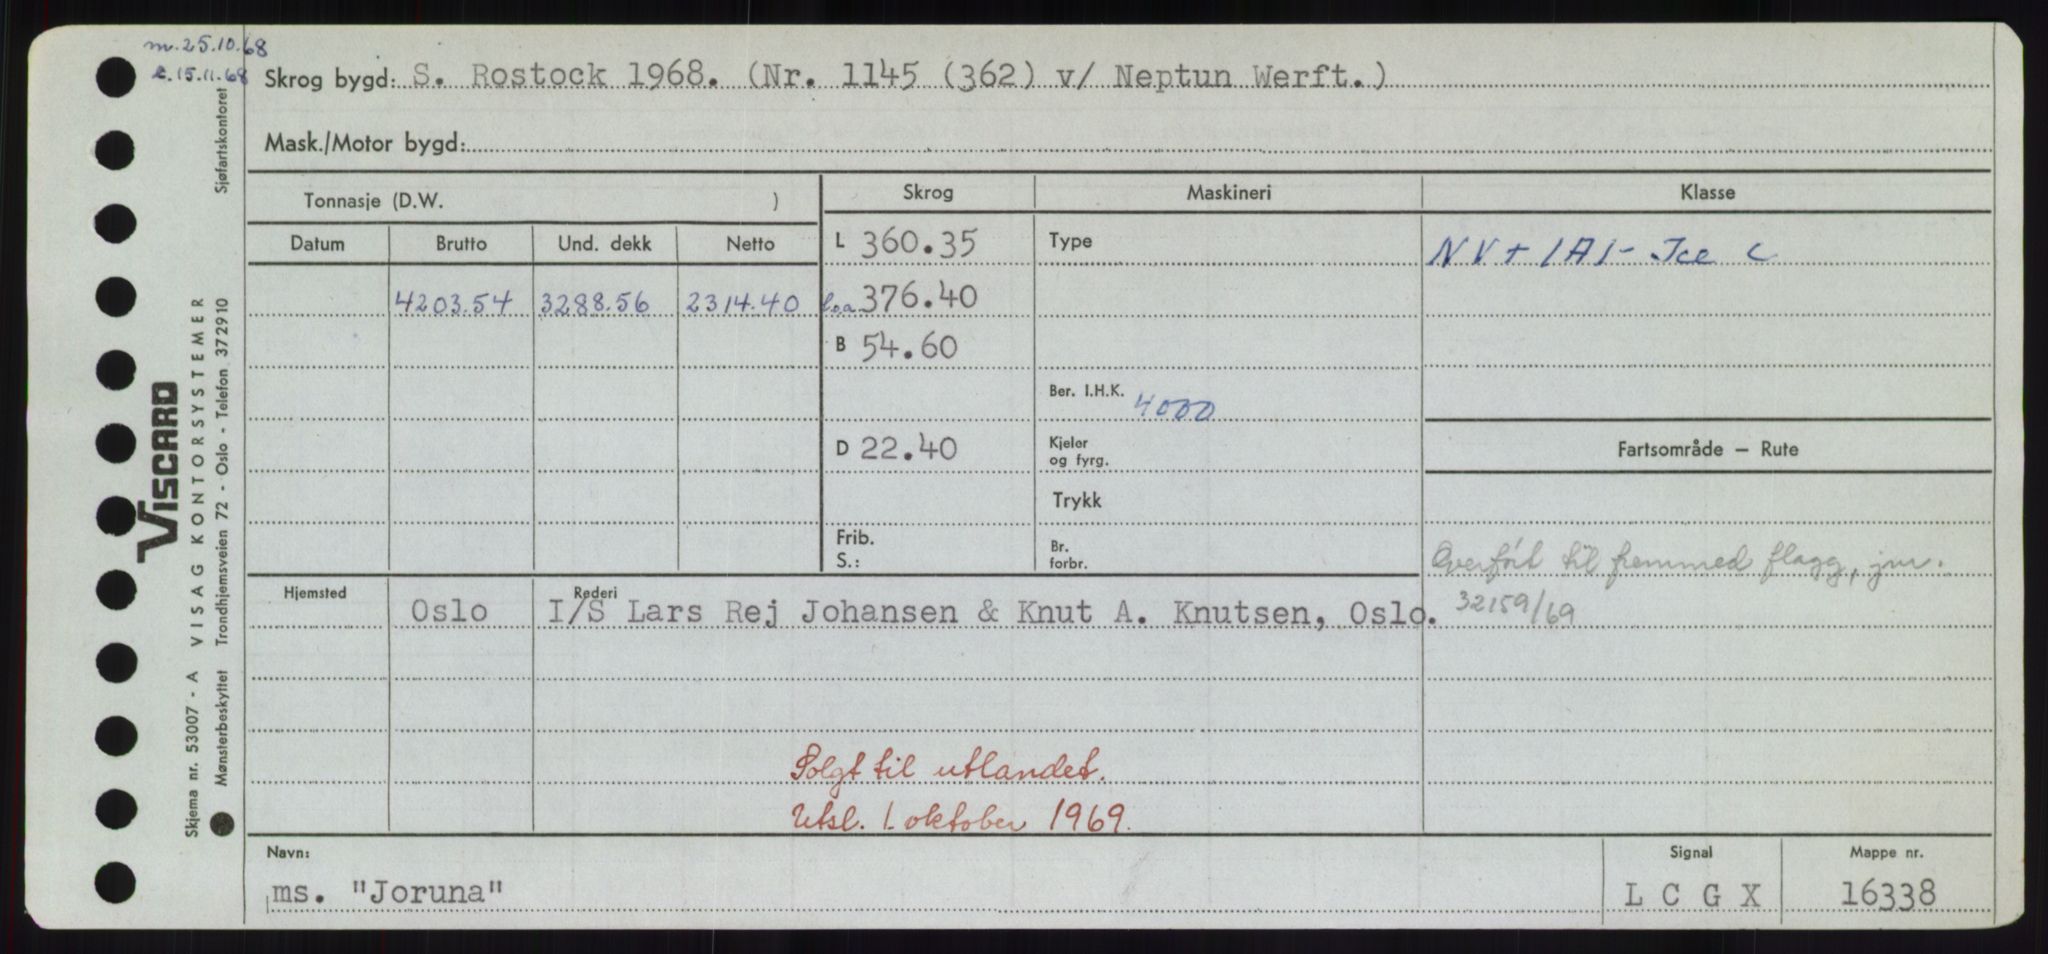 m. 25.10.68
k. 15.11.68
Skrog bygd: S. Rostock 1968. (Nr. 1145 (362) v/ Neptun Werft.)
Mask./Motor bygd:
Tonnasje (D.W. ) Skrog Maskineri Klasse
Datum Brutto Und. dekk Netto L 360.35 Type NV + 1A1 - Ice C
4203.54 3288.56 2314.40 l.o.a. 376.40
B 54.60
Ber. I.H.K. 4000
D 22.40 Kjeler og fyrg. Fartsområde — Rute
Trykk
Frib. S.: Br. forbr.
Overført til fremmed flagg, jnr.
32159/69
Hjemsted Oslo Rederi I/S Lars Rej Johansen & Knut A. Knutsen, Oslo.
Solgt til utlandet.
Utsl. 1. oktober 1969.
Navn: Signal Mappe nr.
ms. "Joruna" L C G X 16338
VISCARD
Skjema nr. 53007 - A VISAG KONTORSYSTEMER
Mønsterbeskyttet Trondhjemsveien 72 - Oslo - Telefon 372910 Sjøfartskontoret